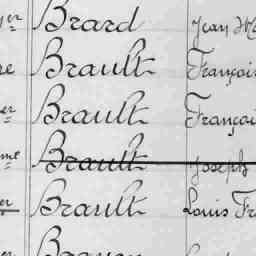 er Brard Jean M
re Brault François
er Brault François
me Brault Joseph
er Brault Louis Fr
er